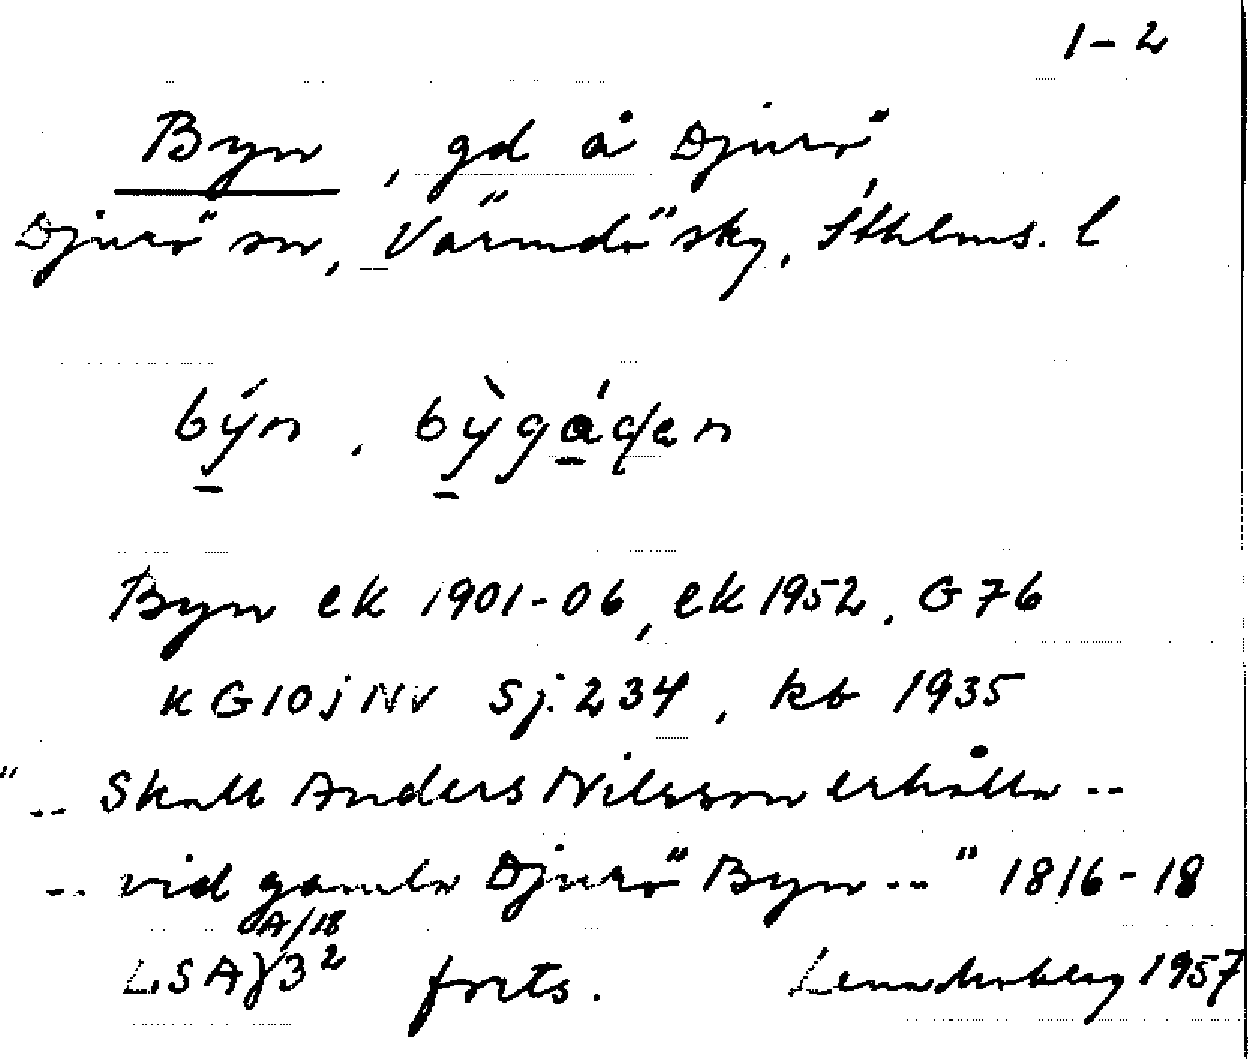 1-2
Byn, gd å Djurö
Djurö sn, Värmdö skg, Sthlms. l
býn, bỳgádẹn
Byn ek 1901-06, ek 1952, G 76
KG10j NV Sj. 234, kb 1935
".. Skall Anders Nilsson erhålla --
-- vid gamla Djurö Byn --" 1816-18
A/18
LSA 3² forts. 1957